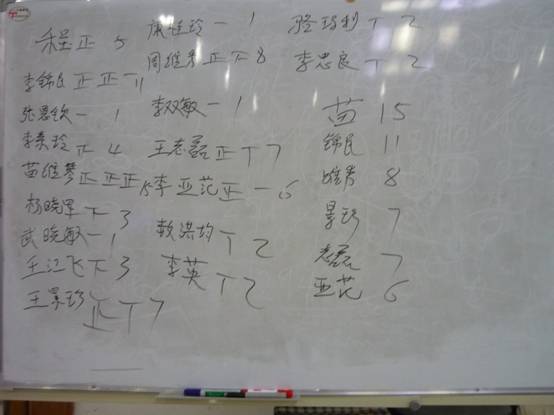 程正 5
李锦民正正一 11
张恩钦一 1
李美玲正 4
苗维琴正正正 15
杨晓军下 3
武晓敏一 1
王江飞下 3
王景珍正丅 7
康桂玲一 1
周维芳正下 8
李双敏一 1
王志磊正丅 7
李亚范正一 6
丅 2
李英丅 2
丅 2
李忠良丅 2
苗 15
锦民 11
维芳 8
景珍 7
志磊 7
亚范 6